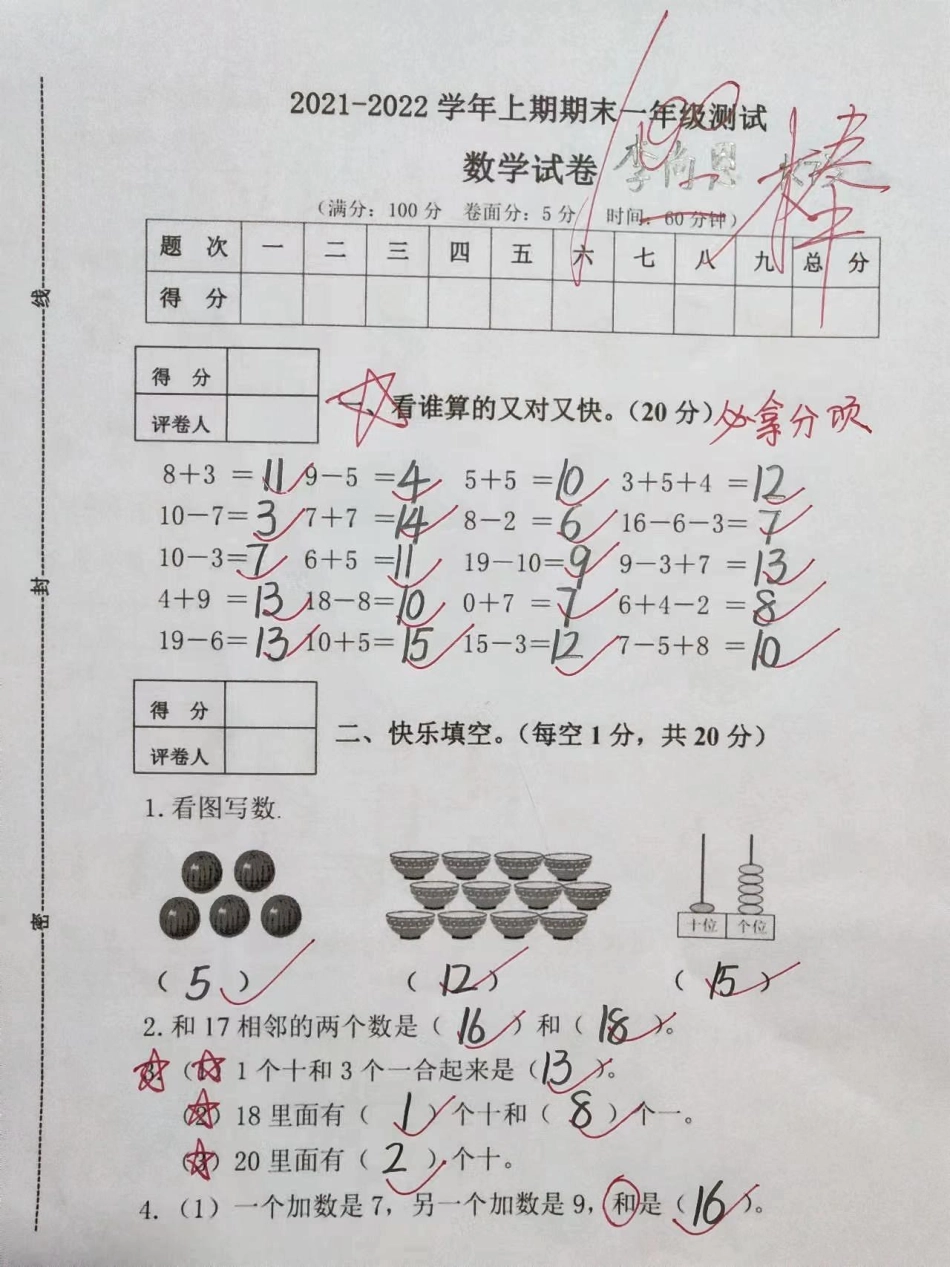 2021-2022 学年上期期末一年级测试
100
数学试卷 李尚恩
棒
（满分：100 分 卷面分：5 分 时间：60 分钟）
题 次 一 二 三 四 五 六 七 八 九 总 分
得 分
得 分
评卷人
一、看谁算的又对又快。（20 分）必拿分项
8＋3 ＝11 9－5 ＝4 5＋5 ＝10 3＋5＋4 ＝12
10－7＝3 7＋7 ＝14 8－2 ＝6 16－6－3＝7
10－3＝7 6＋5 ＝11 19－10＝9 9－3＋7 ＝13
4＋9 ＝13 18－8＝10 0＋7 ＝7 6＋4－2 ＝8
19－6＝13 10＋5＝15 15－3＝12 7－5＋8 ＝10
得 分
评卷人
二、快乐填空。（每空 1 分，共 20 分）
1. 看图写数.
十位 个位
（ 5 ） （ 12 ） （ 15 ）
2. 和 17 相邻的两个数是（ 16 ）和（ 18 ）。
3.（1）1 个十和 3 个一合起来是（13 ）。
（2）18 里面有（ 1 ）个十和（ 8 ）个一。
（3）20 里面有（ 2 ）个十。
4.（1）一个加数是 7，另一个加数是 9，和是（16 ）。
线
封
密